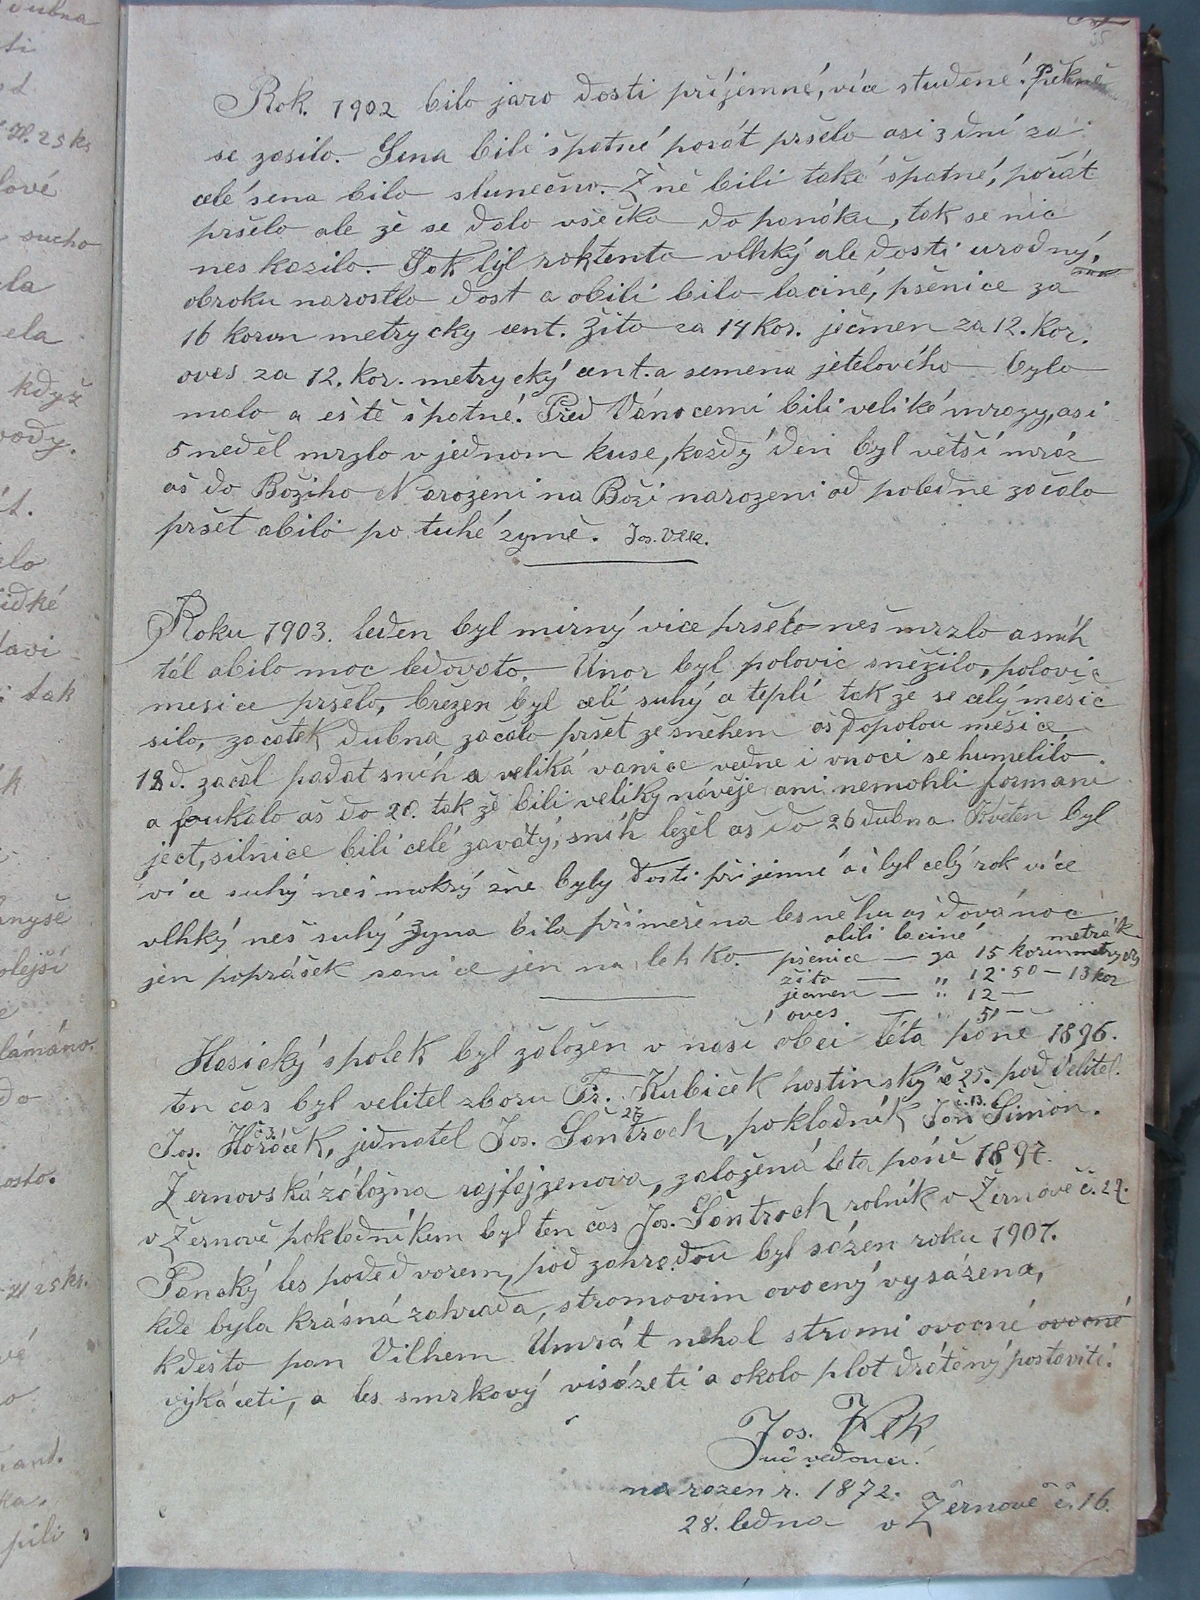 Rok. 1902 bilo jaro dosti príjemné, více studené! Pěkně
se zasilo. Sena bili špatné porát pršelo asi 3 dní za
celé sena bilo slunečno. Žně bili také špatné, pořát
pršelo ale že se dalo všecko do panáku, tak se nic
nes kazilo. Rok byl roktento vlhký ale dosti urodný,
obroku narostlo dost a obilí bilo laciné, pšenice za
16 korun metrycky cent. Žito za 14 kor. ječmen za 12. kor.
oves za 12. kor. metrycký cent. a semena jetelového bylo
malo a eště špatné. Před Vánocemi bili veliké mrazy, asi
5 neděl mrzlo v jednom kuse, každý den byl větší mráz
aš do Božího Narození na Boží narozeni od poledne začalo
pršet abilo po tuhé zymě. Jos. Vlk.
Roku 1903. leden byl mirný vice pršelo neš mrzlo a sníh
tál abilo moc ledovato. Unor byl polovic sněžilo, polovic
mesice pršelo, březen byl celí suhý a teplí tak že se celý mesic
silo, začátek dubna začalo pršet ze sněhem aš dopolou měsice
18 d. začal padat sníh a veliká vanice vedne i vnoci se humelilo
a foukalo aš do 20. tak že bili veliky nověje ani nemohli formani
ject, silnice bili celé zavátý, sníh ležel aš do 26 dubna. Květen byl
více suhý neš mokrý žne byly dosti príjemné a i byl celý rok více
vlhký neš suhý zyna bila přimeřena lesněhu aš dovánoc
jen poprášek sanice jen na lehko.
obilí laciné metrák
pšenice — za 15 korun metrycky
žito — „ 12·50 — 13 kor
ječmen — „ 12 —
oves — „ 5 —
Hasický spolek byl založen v naší obci léta páně 1896.
ten čas byl velitel zboru Fr. Kubiček hostinský č 25. pod velitel.
Jos. Horáček, č 3. jednatel Jos. Šantroch 27, pokladník Jan Šimon. č. 13.
Žernovská záložna rajfajzenova, založená leta páně 1897.
v Žernově pokladníkem byl ten čas Jos. Šantroch rolník v Žernově č. 27.
Panský les podedvorem, pod zahradou byl sázen roku 1907.
kde byla krásná zahrada, stromovim ovocný vysázena,
kdešto pan Vilhem Umrát nehal stromi ovocné ovocné
vykáceti, a les smrkový visázeti a okolo plot drátěný postaviti.
Jos. Vlk
na rozen r. 1872.
28. ledna v Žernově č. 16.